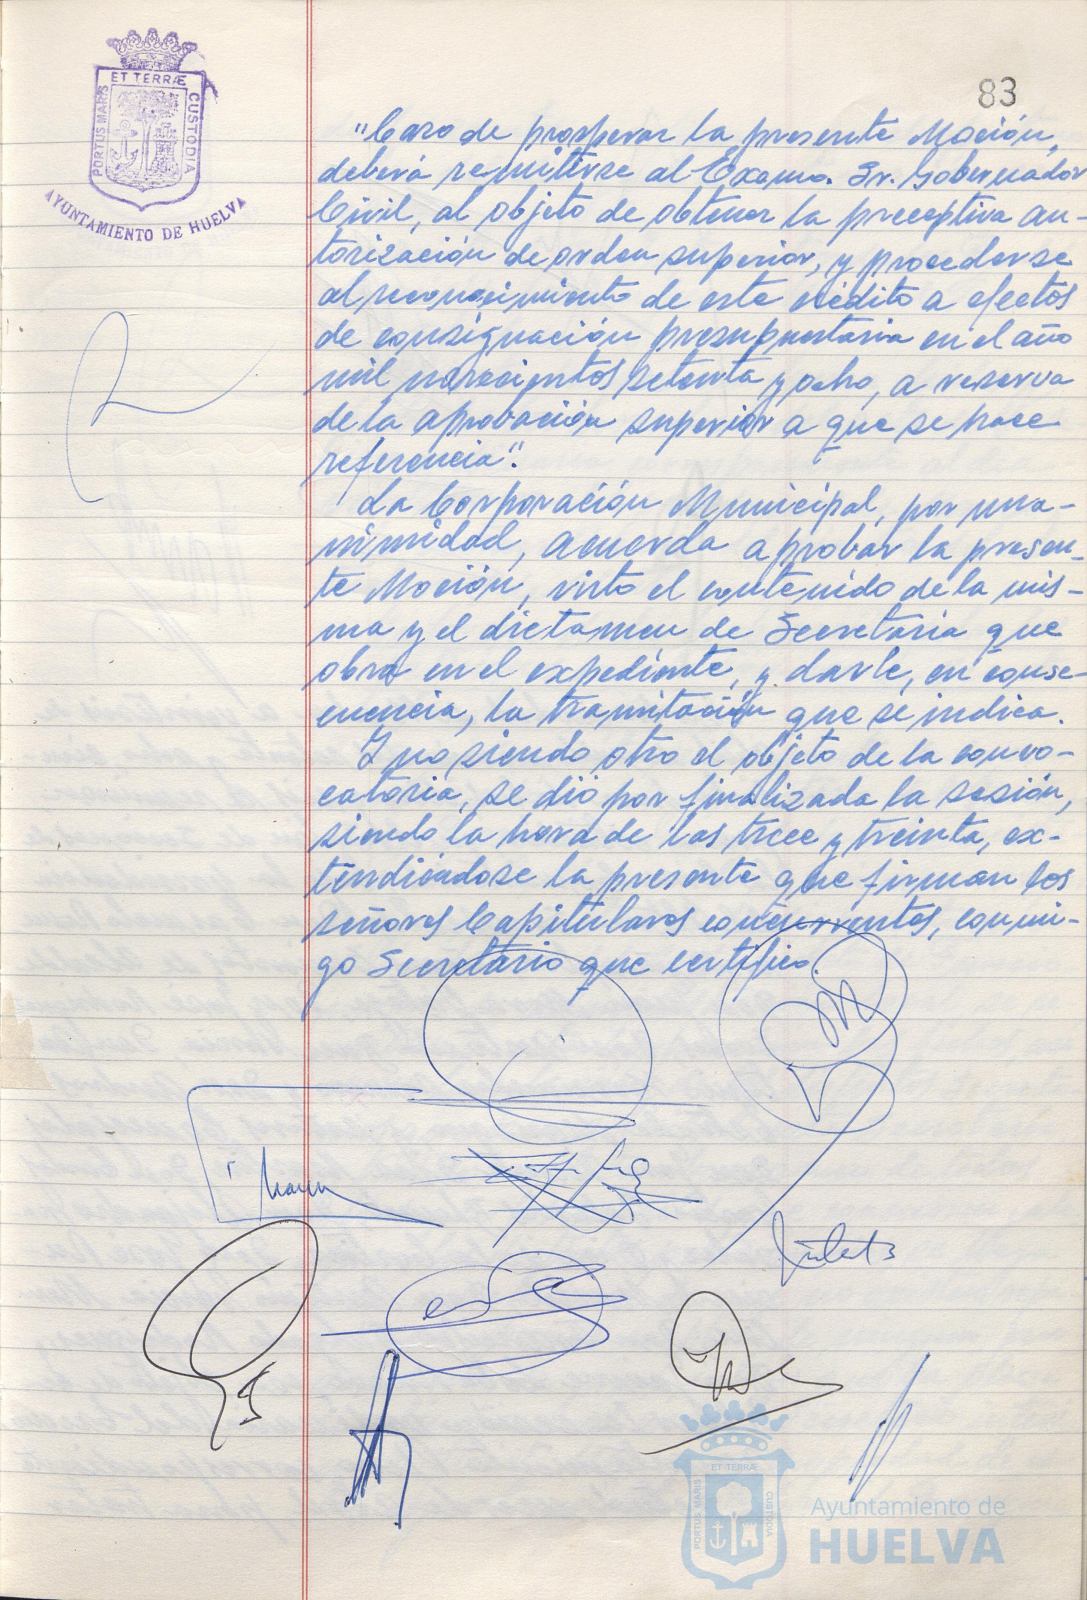 ET TERRÆ
PORTUS MARIS
CUSTODIA
AYUNTAMIENTO DE HUELVA
83
"Caso de prosperar la presente Moción,
deberá remitirse al Excmo. Sr. Gobernador
Civil, al objeto de obtener la preceptiva au-
torización de orden superior, y procederse
al reconocimiento de este crédito a efectos
de consignación presupuestaria en el año
mil novecientos setenta y ocho, a reserva
de la aprobación superior a que se hace
referencia".
La Corporación Municipal, por una-
nimidad, acuerda aprobar la presen-
te Moción, visto el contenido de la mis-
ma y el dictamen de Secretaría que
obra en el expediente, y darle, en conse-
cuencia, la tramitación que se indica.
Y no siendo otro el objeto de la convo-
catoria, se dió por finalizada la sesión,
siendo la hora de las trece y treinta, ex-
tendiéndose la presente que firman los
señores Capitulares concurrentes, conmi-
go Secretario que certifico.
ET TERRÆ
PORTUS MARIS
CUSTODIA
Ayuntamiento de
HUELVA